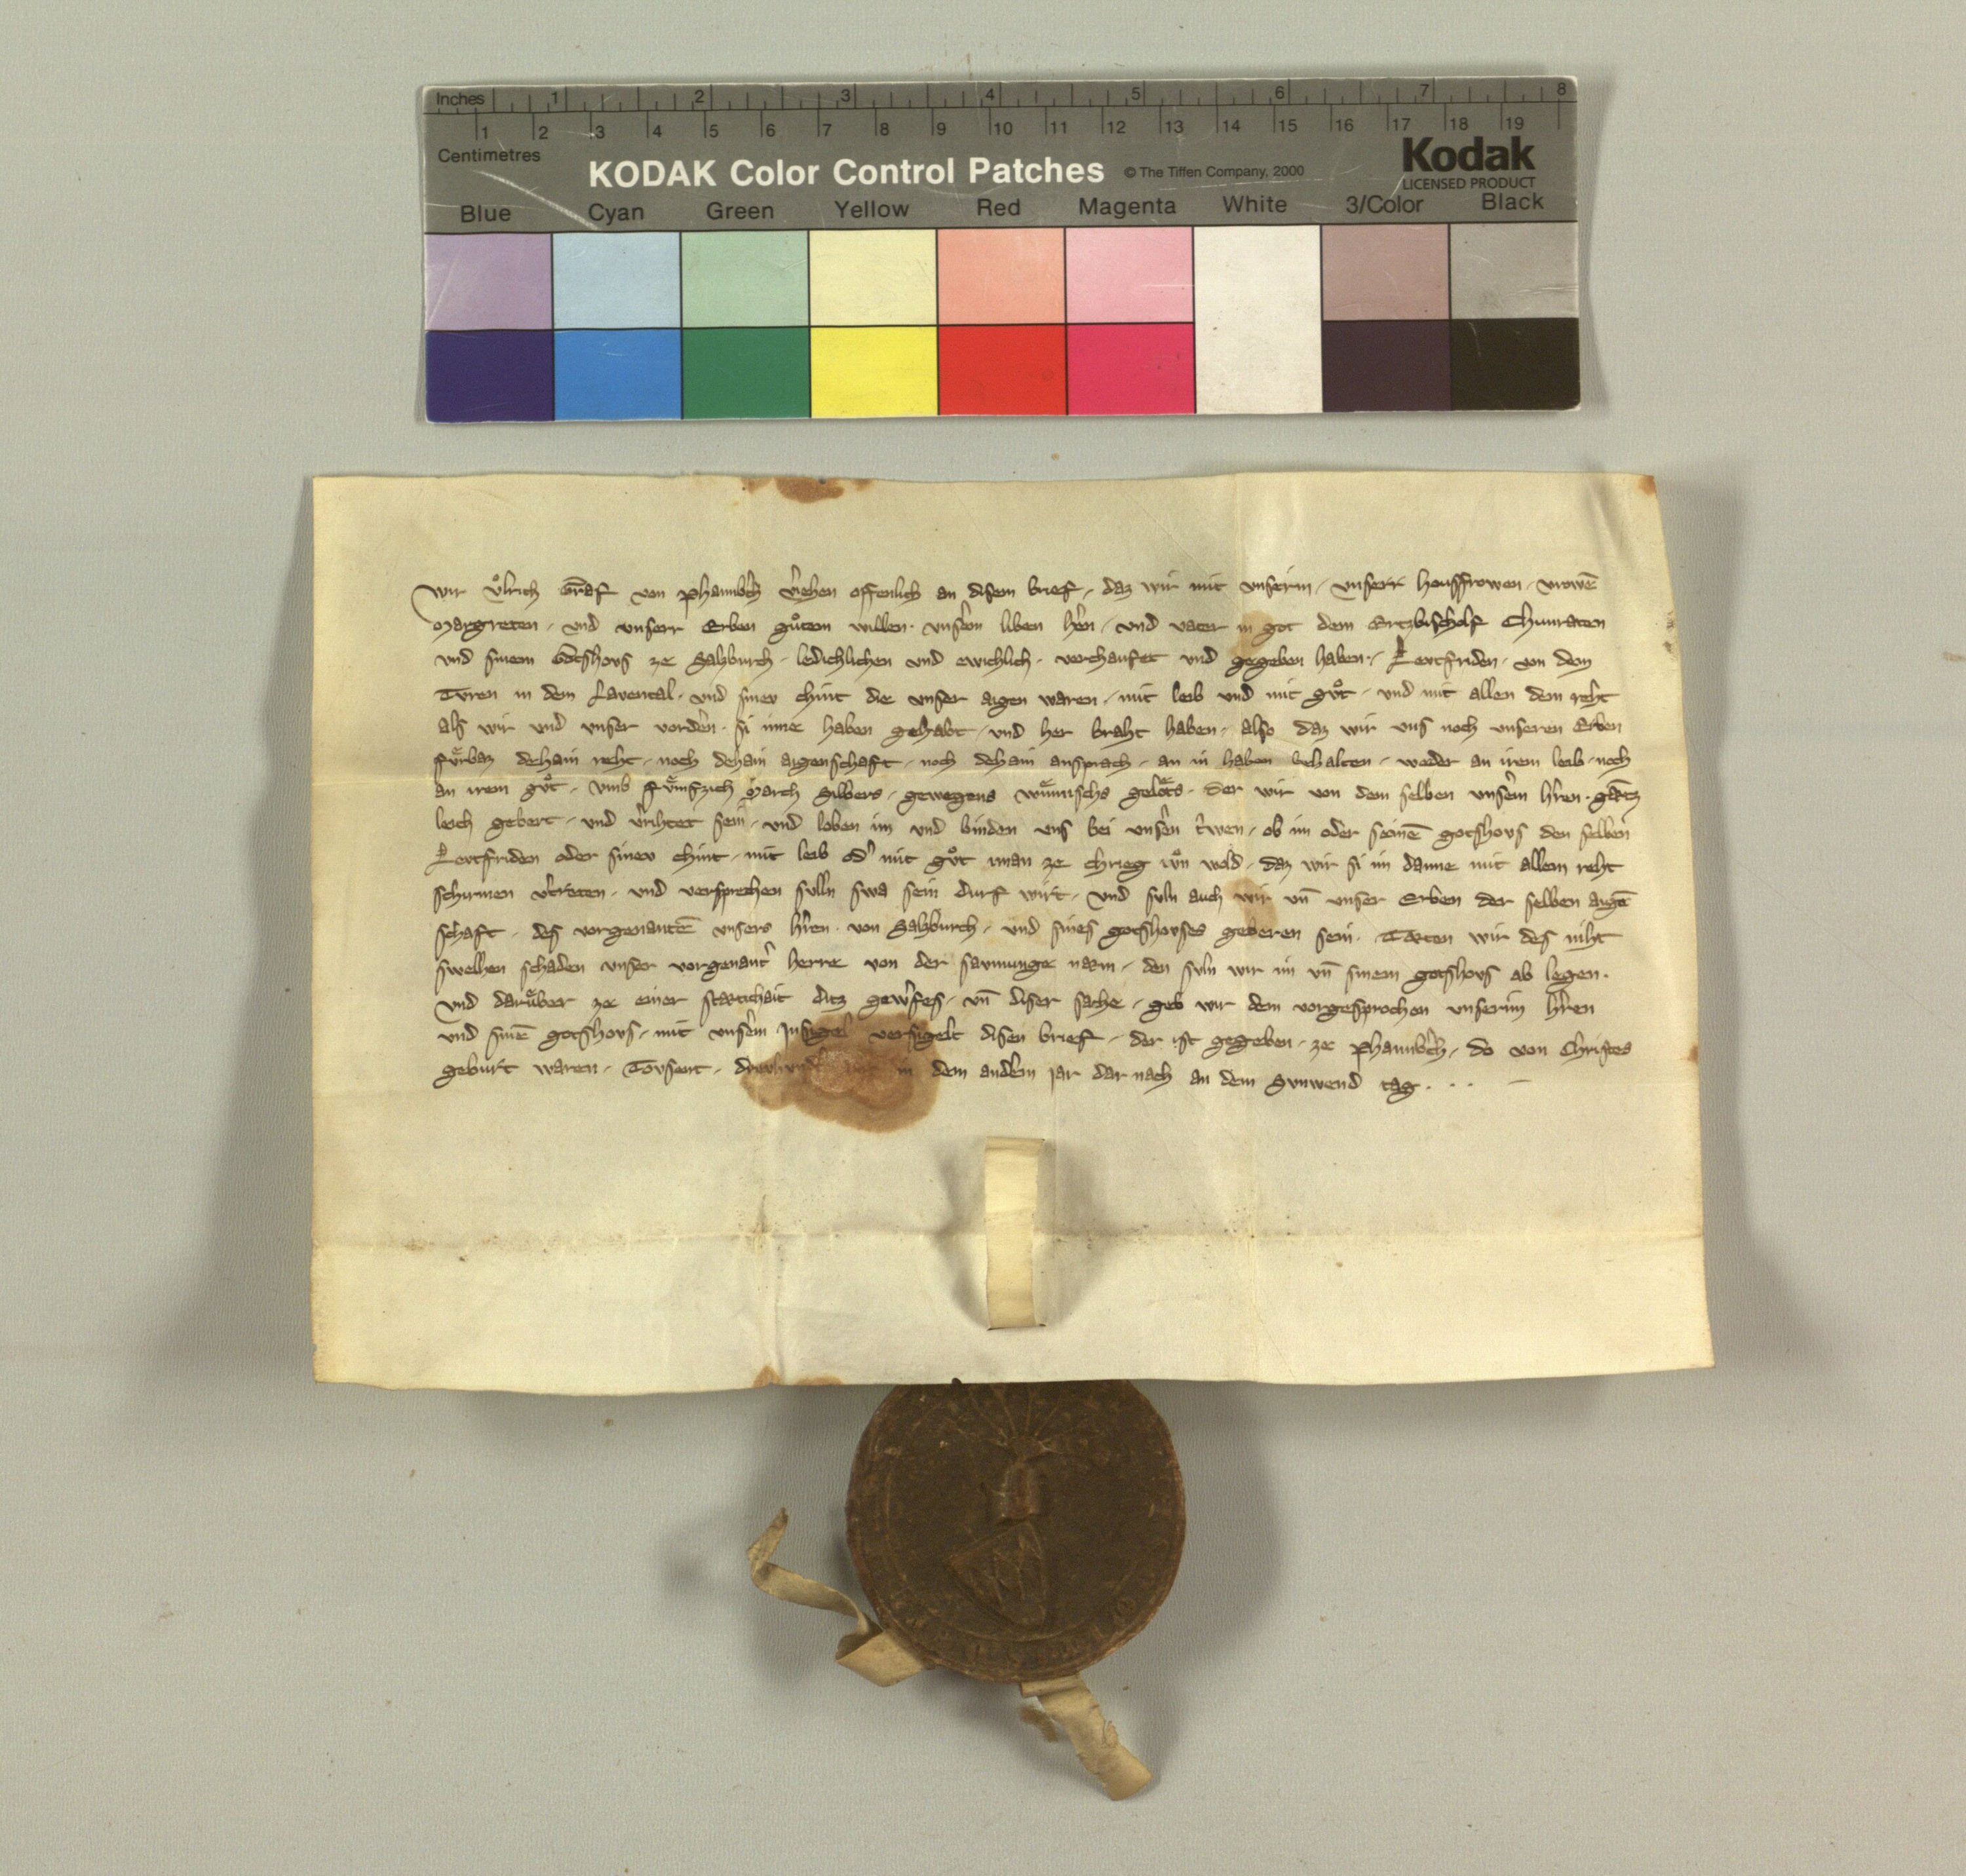 Inches 1 2 3 4 5 6 7 8
1 2 3 4 5 6 7 8 9 10 11 12 13 14 15 16 17 18 19
Centimetres
KODAK Color Control Patches © The Tiffen Company, 2000 Kodak
LICENSED PRODUCT
Blue Cyan Green Yellow Red Magenta White 3/Color Black
Wir Vͦlrich Graf von Phannbch veriehen offenlich an disem brief, daz wir mit vnserm, vnserr housfrowen, vrowē
Margreten, vnd vnserr Erben guͦtem willen. vnserm liben hren, vnd vater in got dem Ertzbischolf Chunraten
vnd sinem Gotshovs ze Salzburch, ledichlichen vnd ewichlich, verchaufet vnd gegeben haben, Levtfriden, von dem
Turen in dem Lavental, vnd sinev chint die vnser aigen waren, mit leib vnd mit guͦt, vnd mit allen dem reht
als wir vnd vnser vordern. si inne haben gehabt, vnd her braht haben, also daz wir vns noch vnseren Erben
fuͤrbaz dehain reht, noch dehain aigenschaft, noch dehain ansprach, an in haben behalten, weder an irem leib, noch
an irem guͦt, vmb fuͤmfzich March Silbers, gewegens wiennischs geloͤts. der wir von dem selben vnserm hren. gætz
leich gebert, vnd verihtet sein, vnd loben im vnd binden vns bei vnsern trwen, ob im oder seinē gotshovs den selben
Levtfriden oder sinev chint, mit leib od' mit guͦt iman ze chrieg tuͦn wold, daz wir si im danne mit allem reht
schirmen vertreten, vnd versprechen sulln swa sein durf wirt, vnd suln auch wir vn̄ vnser Erben der selben aigē
schaft, des vorgenantē vnsers hren. von Salzburch, vnd sines gotshovses geweren sein. Tæten wir des niht
swelhen schaden vnser vorgenant' herre von der savmunge næm, den suln wir im vn̄ sinem gotshovs ab legen.
vnd daruͤber ze einer stætichait ditz gewerfes, vn̄ diser sache, geb wir dem vorgesprochen vnserm hren
vnd sinē gotshovs, mit vnserm Insigel versigelt disen brief, der ist gegeben, ze Phannbch, do von Christes
geburt waren, Tovsent, drevhundert in dem andern jar dar nach an dem Svnwend tag. . .